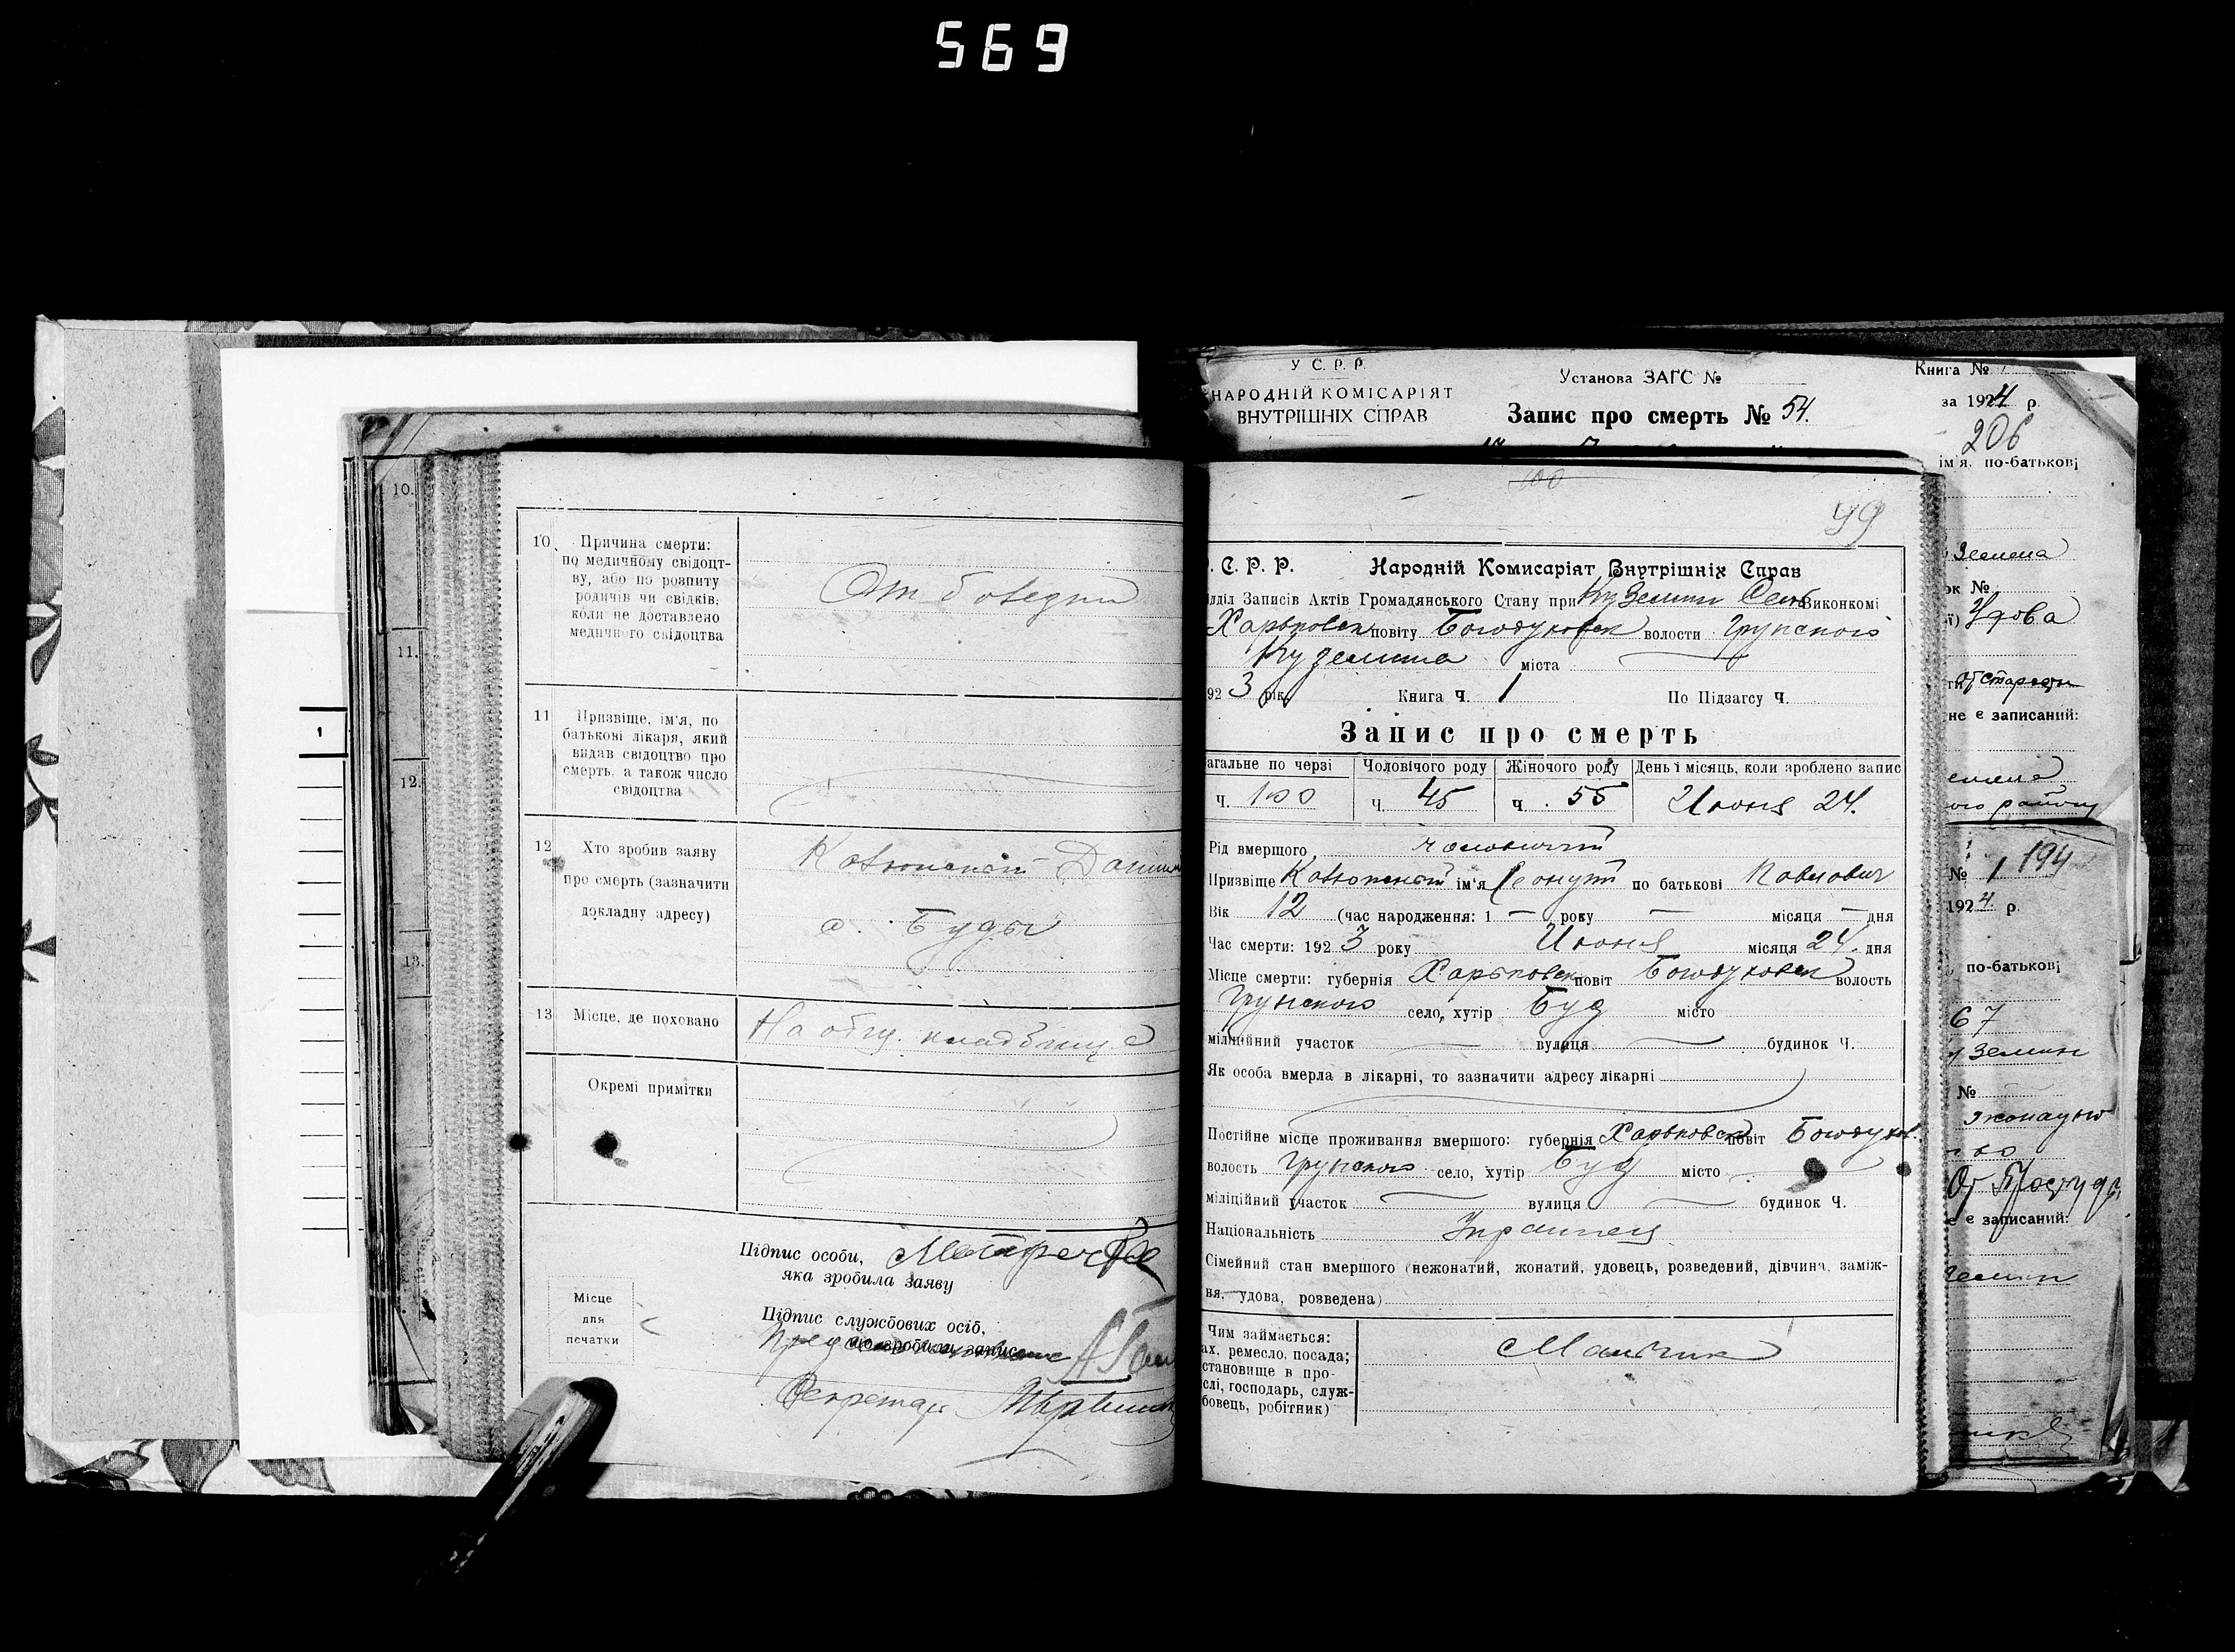 569
10.
11.
12.
13.
1
10. Причина смерти:
по медичному свідоцт-
ву, або по розпиту
родичів чи свідків;
коли не доставлено
медичного свідоцтва
От
11 Призвіще, ім'я, по
батькові лікаря, який
видав свідоцтво про
смерть, а також число
свідоцтва
12 Хто зробив заяву
про смерть (зазначити
докладну адресу)
с. Буды
13 Місце, де поховано
На общ. кладбище
Окремі примітки
Підпис особи,
яка зробила заяву
Місце
для
печатки
Підпис службових осіб,
що зробили запис
Секретарь
У С. Р. Р.
НАРОДНІЙ КОМІСАРІЯТ
ВНУТРІШНІХ СПРАВ
Установа ЗАГС №
Запис про смерть № 54.
Книга №
за 1924 р.
206
ім'я, по-батькові
100
99
. С. Р. Р. Народній Комисаріят Внутрішніх Справ
ідділ Записів Актів Громадянського Стану при Куземин Сель Виконкомі
Харьковск повіту Богодуховск волости Грунского
Куземина міста
92 3 рік Книга Ч. 1 По Підзагсу Ч.
Запис про смерть
агальне по черзі Чоловічого роду Жіночого роду День і місяць, коли зроблено запис
Ч. 100 Ч. 45 Ч. 55 Июня 24.
Рід вмершого чоловичий
Призвіще ім'я по батькові Павлович
Вік 12 (час народження: 1 — року — місяця — дня
Час смерти: 192 3 року Июня місяця 24. дня
Місце смерти: губернія Харьковск повіт Богодуховск волость
Грунского село, хутір Буд місто
міліційний участок вулиця будинок Ч.
Як особа вмерла в лікарні, то зазначити адресу лікарні
Постійне місце проживання вмершого: губернія Харьковск повіт Богодухов.
волость Грунского село, хутір Буд місто
міліційний участок вулиця будинок Ч.
Національність Украинец
Сімейний стан вмершого (нежонатий, жонатий, удовець, розведений, дівчина, заміж-
ня, удова, розведена)
Чим займається:
ах, ремесло, посада;
становище в про-
слі, господарь, служ-
бовець, робітник)
Мальчик
Земена
ок №
ї) Удова
ти От старости
не є записаний:
ого району
№ 1 194
1924. р.
по-батькові
67
№
От Простуды
є записаний: